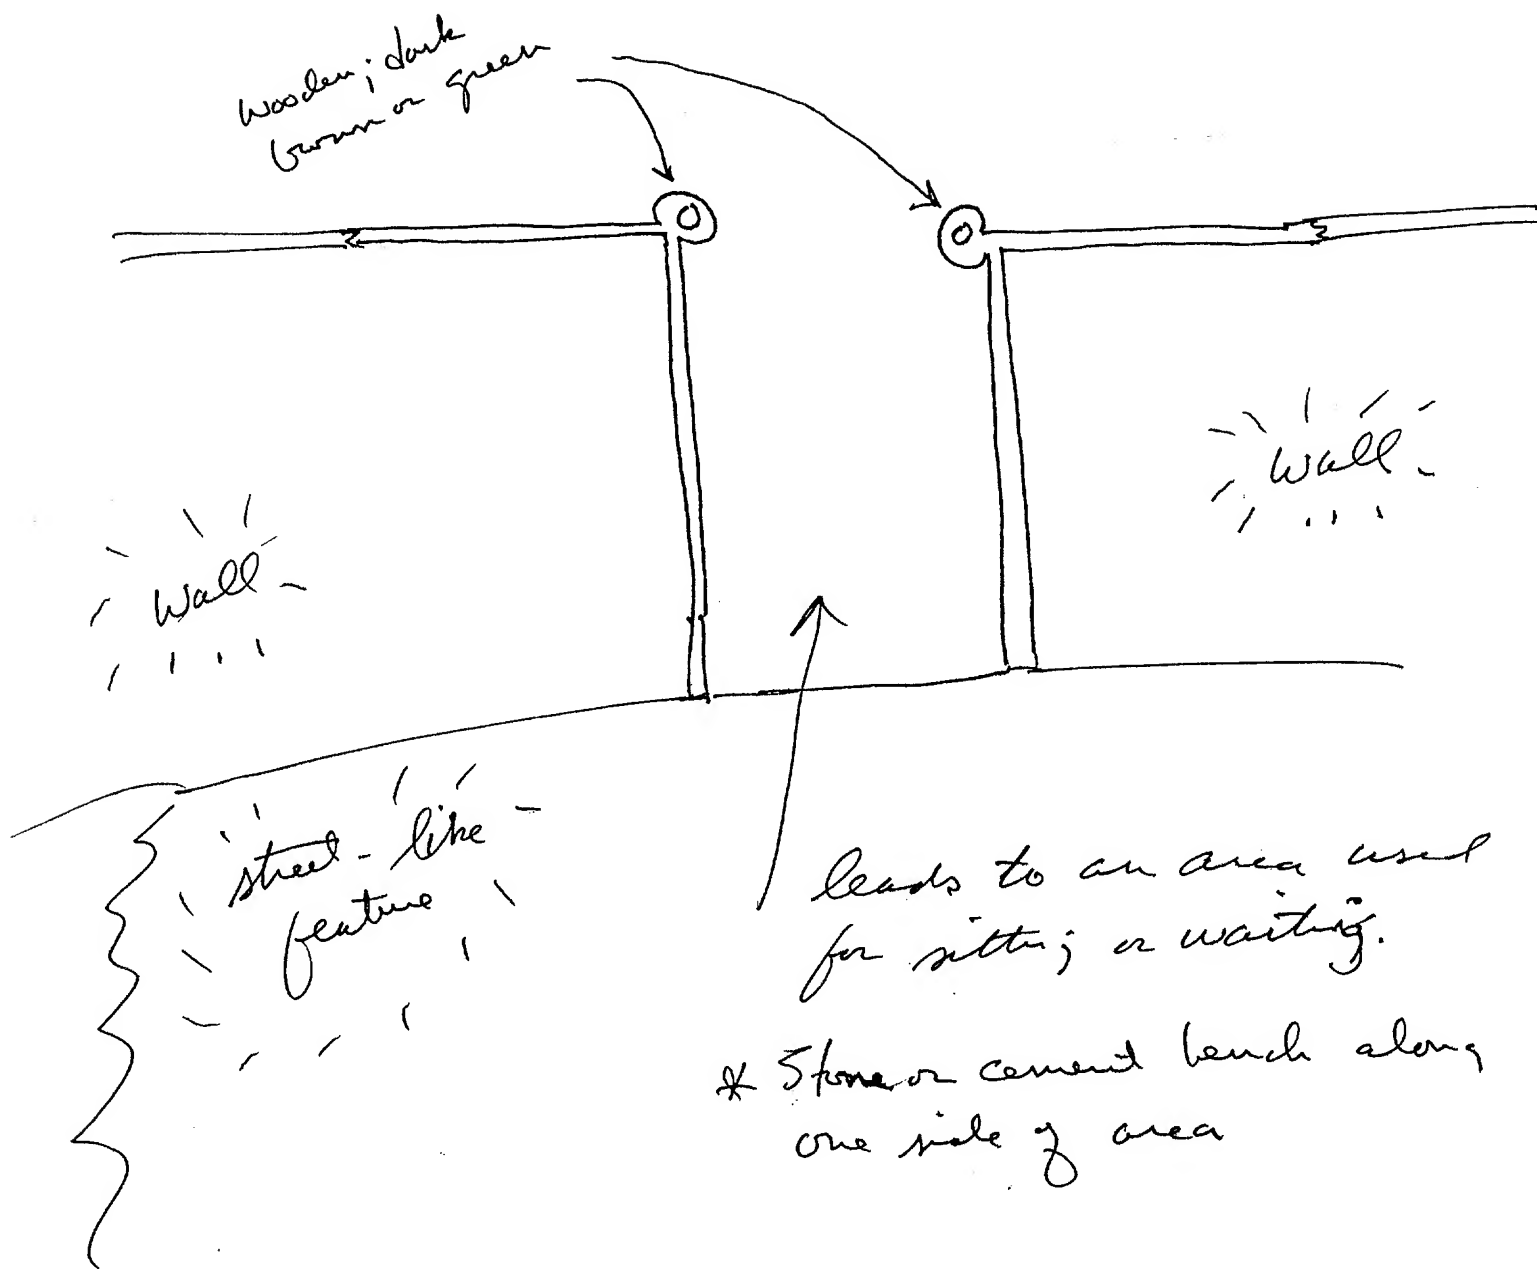 wooden; dark
brown or green
Wall
Wall
street-like
feature
leads to an area used
for sitting or waiting.
* Stone or cement bench along
one side of area